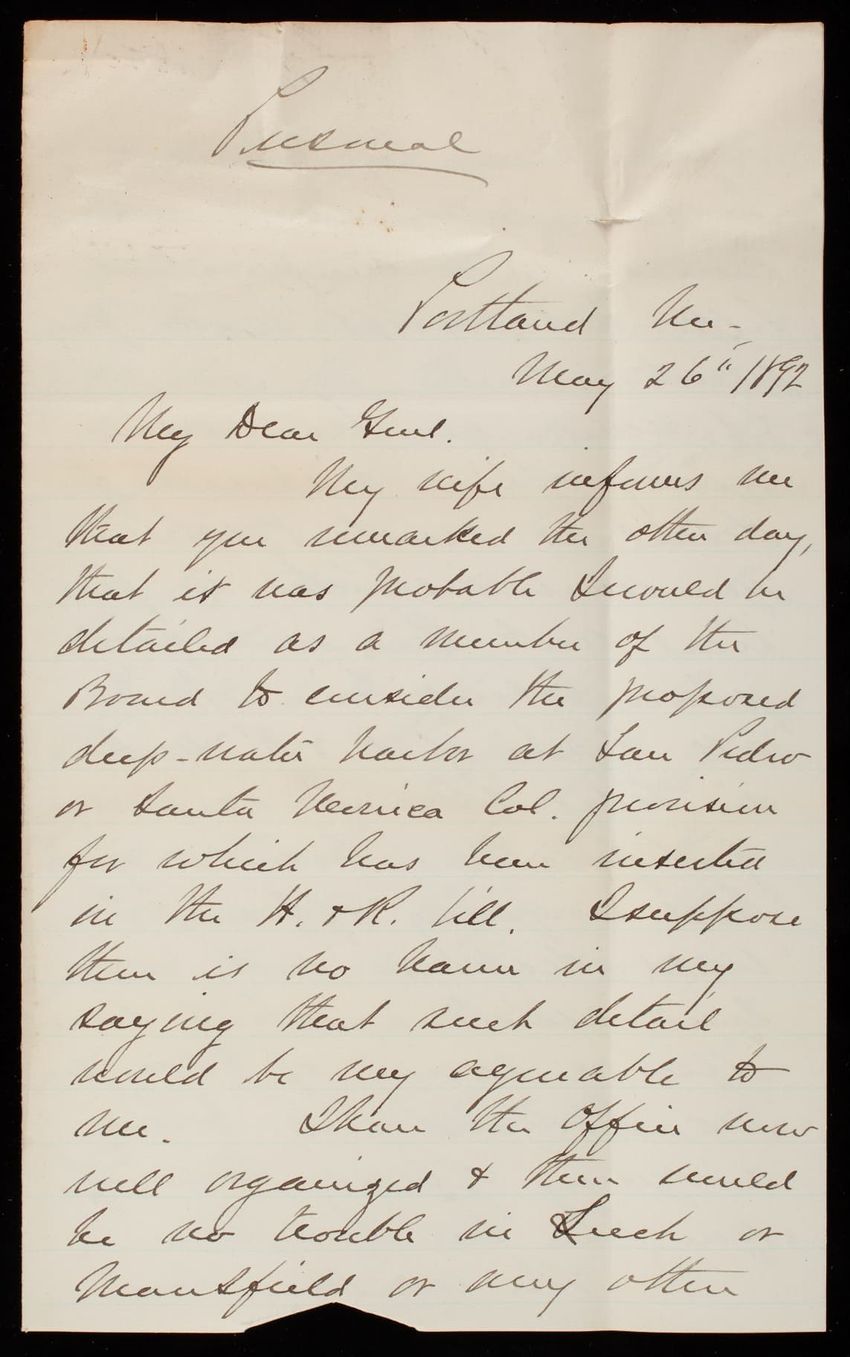 Personal
Portland Me-
May 26" 1892
My Dear Genl.
My wife informs me
that you remarked the other day,
that it was probable I would be
detailed as a member of the
Board to consider the proposed
deep-water harbor at San Pedro
or Santa Monica Cal. provision
for which has been inserted
in the H. & R. bill. I suppose
there is no harm in my
saying that such detail
would be very agreeable to
me. I have the Office now
well organized & there would
be no trouble in Leech or
Mansfield or any other